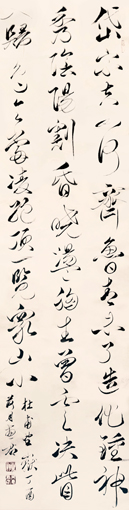 岱宗夫如何齊魯青未了造化鍾神
秀陰陽割昏曉盪胸生曾雲決眥
入歸鳥會當凌絕頂一覽眾山小
杜甫望嶽丁酉